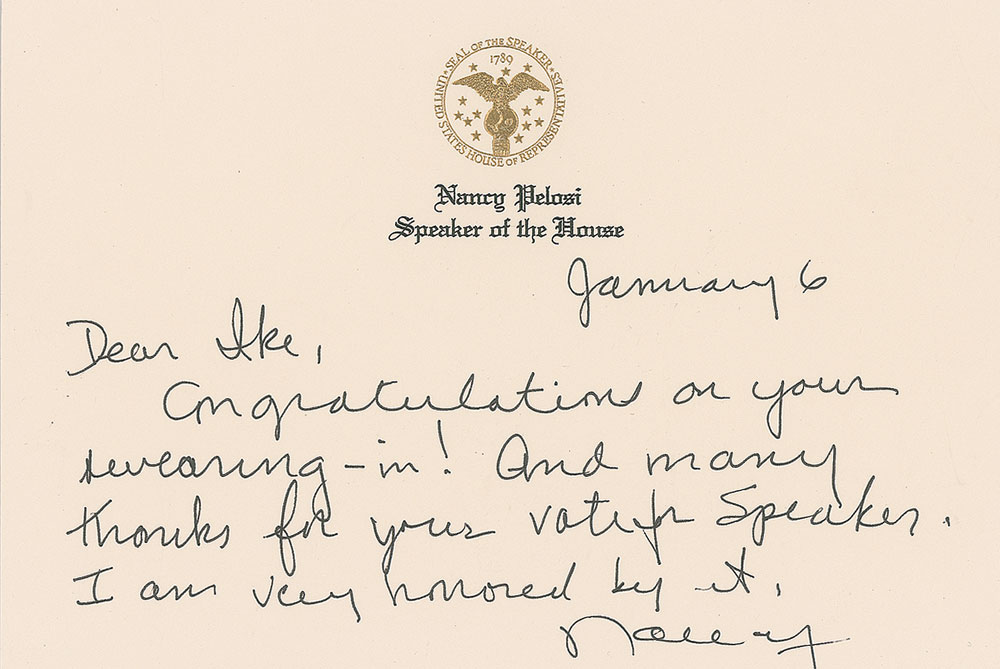 SEAL OF THE SPEAKER
UNITED STATES HOUSE OF REPRESENTATIVES
1789
Nancy Pelosi
Speaker of the House
January 6
Dear Ike,
Congratulations on your
swearing-in! And many
thanks for your vote for Speaker.
I am very honored by it.
Nancy